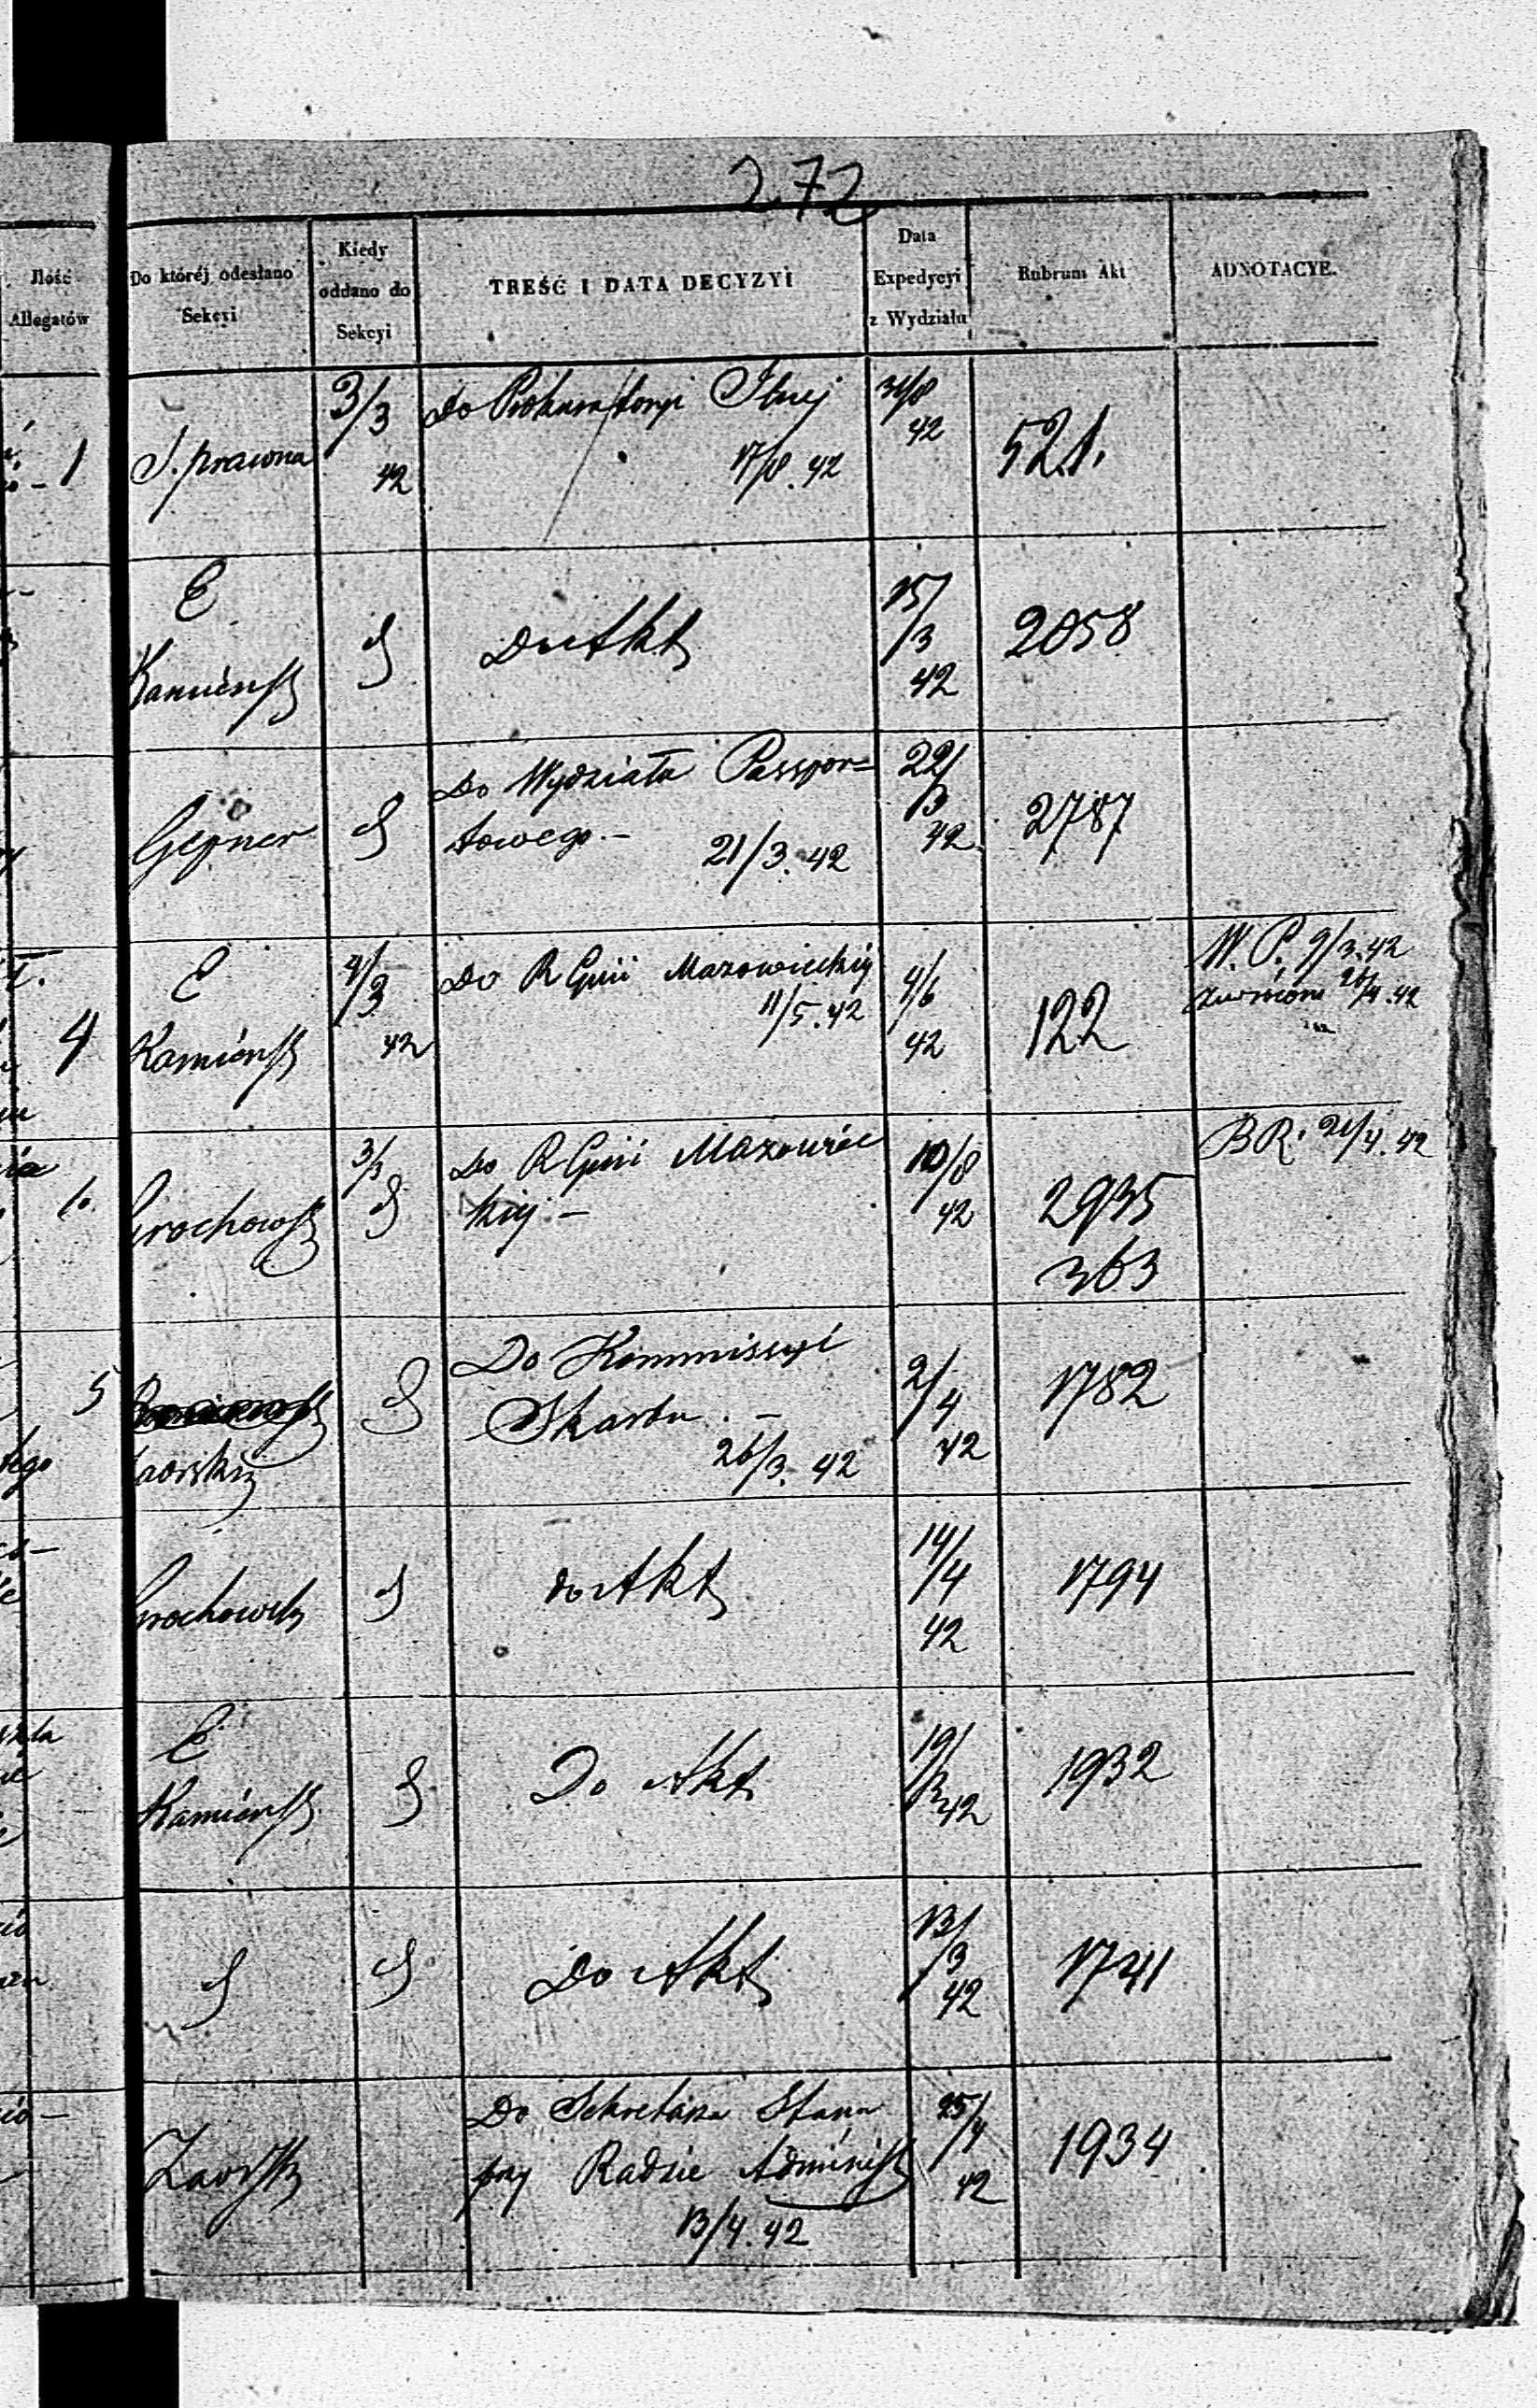 272
Ilość
Allegatów
Do któréj odesłano
Sekcyi
Kiedy
oddano do
Sekcyi
TREŚĆ I DATA DECYZYI
Data
Expedycyi
z Wydziału
Rubrum Akt
ADNOTACYE.
1
S. prawna
3/3
42
Do Prokuratoryi
17/8. 42
31/8
42
521.
E
Kamieńsk
Do Akt
15/
/3
42
2058
Gepner
Do Wydziału Passpor=
towego.—
21/3. 42
22/
/3
42
2787
4
E
Kamieńsk
4/3
42
Do R Gnii Mazowieckiej
11/5. 42
4/6
42
122
W. P. 9/3. 42
zwrócone 26/4. 42
1.
Grochowsk
3/3
Do R Gnii Mazowiec
kiej —
10/8
42
2935
363
BR. 21/4. 42
5
Zaorski
Do Kommissyi
Skarbu. —
26/3. 42
2/4
42
1782
Grochowsk
do Akt
14/
/4
42
1794
E
Kamieńsk
Do Akt
19/
42
1932
Do Akt
13/
/3
42
1741
Zaorsk
Do Sekretarza Stanu
przy Radzie Administ
13/4. 42
25/
/4
42
1934